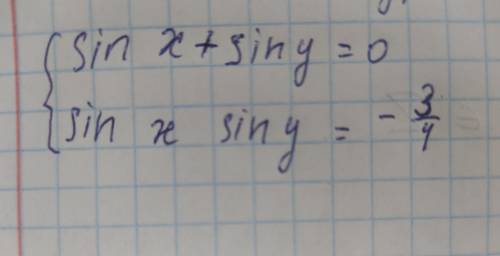 sin x + sin y = 0
sin x sin y = - 3/4